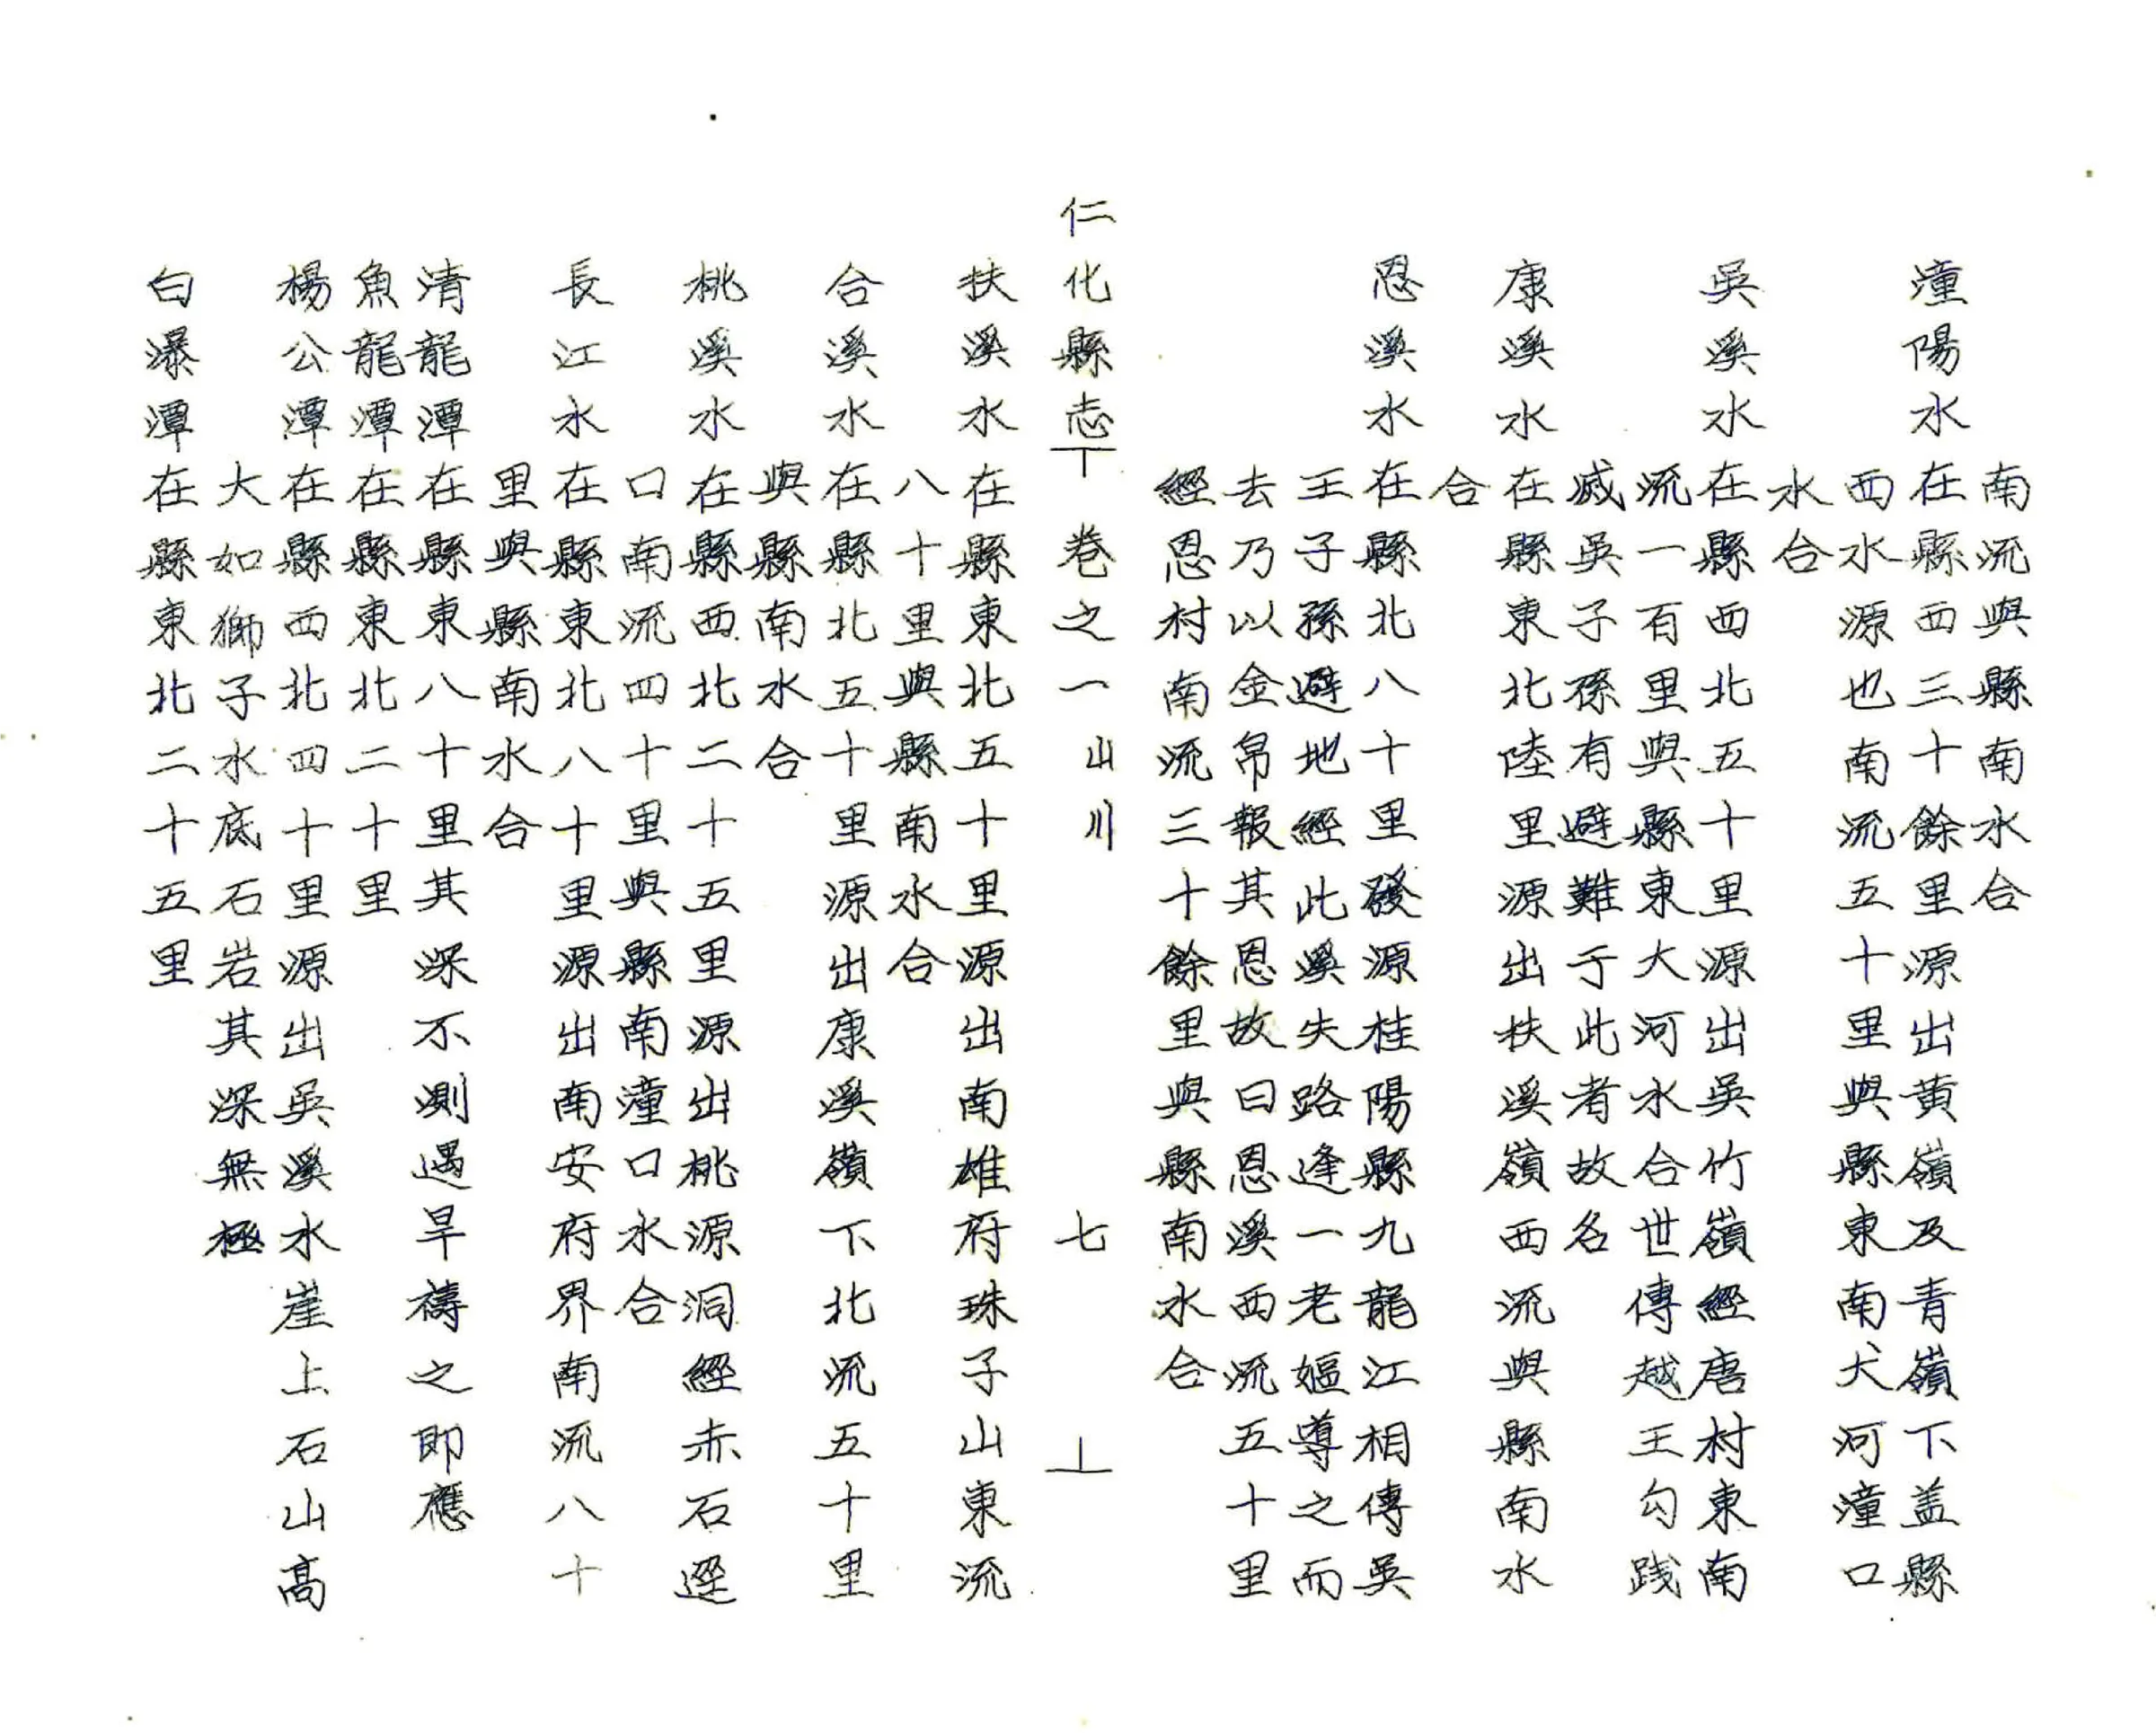 南流與縣南水合
潼陽水在縣西三十餘里源出黃嶺及青嶺下盖縣
西水源也南流五十里與縣東南犬河潼口
水合
吳溪水在縣西北五十里源出吳竹嶺經唐村東南
流一百里與縣東大河水合世傳越王勾践
烕吳子孫有避難于此者故名
康溪水在縣東北陸里源出扶溪嶺西流與縣南水
合
恩溪水在縣北八十里發源桂陽縣九龍江相傳吳
王子孫避地經此溪失路逢一老嫗導之而
去乃以金帛報其恩故曰恩溪西流五十里
經恩村南流三十餘里與縣南水合
仁化縣志 卷之一 山川 七
扶溪水在縣東北五十里源出南雄府珠子山東流
八十里與縣南水合
合溪水在縣北五十里源出康溪嶺下北流五十里
與縣南水合
桃溪水在縣西北二十五里源出桃源洞經赤石逕
口南流四十里與縣南潼口水合
長江水在縣東北八十里源出南安府界南流八十
里與縣南水合
清龍潭在縣東八十里其深不測遇旱禱之即應
魚龍潭在縣東北二十里
楊公潭在縣西北四十里源出吳溪水崖上石山高
大如獅子水底石岩其深無極
白瀑潭在縣東北二十五里